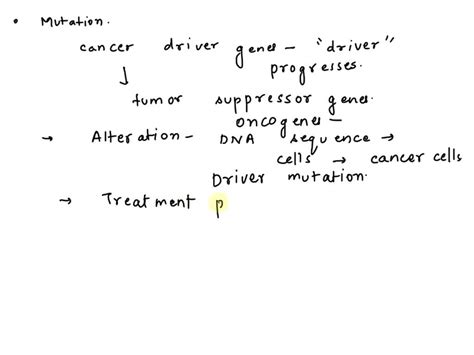 • Mutation.
cancer driver genes - "driver"
progresses.
↓
tumor suppressor genes.
oncogenes -
→ Alteration - DNA sequence →
cells → cancer cells
Driver mutation.
→ Treatment p